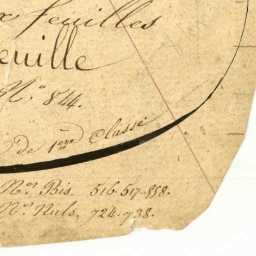 x feuilles
euille
N.º 844.
de 1ère Classe
N.os Bis. 516.517.858.
N.os Nuls, 724.738.